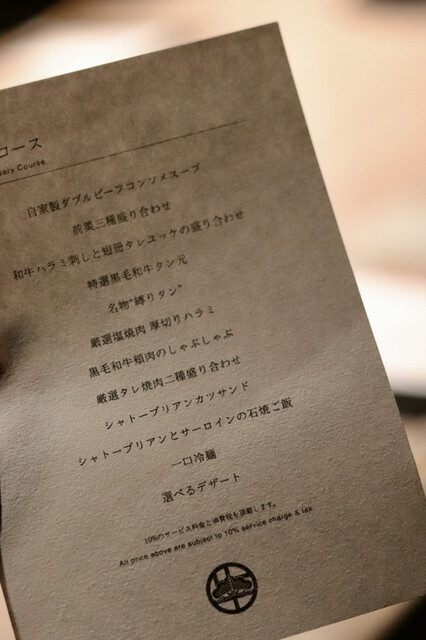 コース
ary Course
自家製ダブルビーフコンソメスープ
前菜三種盛り合わせ
和牛ハラミ刺しと短冊タレユッケの盛り合わせ
特選黒毛和牛タン元
名物“縛りタン”
厳選塩焼肉 厚切りハラミ
黒毛和牛頬肉のしゃぶしゃぶ
厳選タレ焼肉二種盛り合わせ
シャトーブリアンカツサンド
シャトーブリアンとサーロインの石焼ご飯
一口冷麺
選べるデザート
10%のサービス料金と消費税を頂戴します。
All price above are subject to 10% service charge & tax